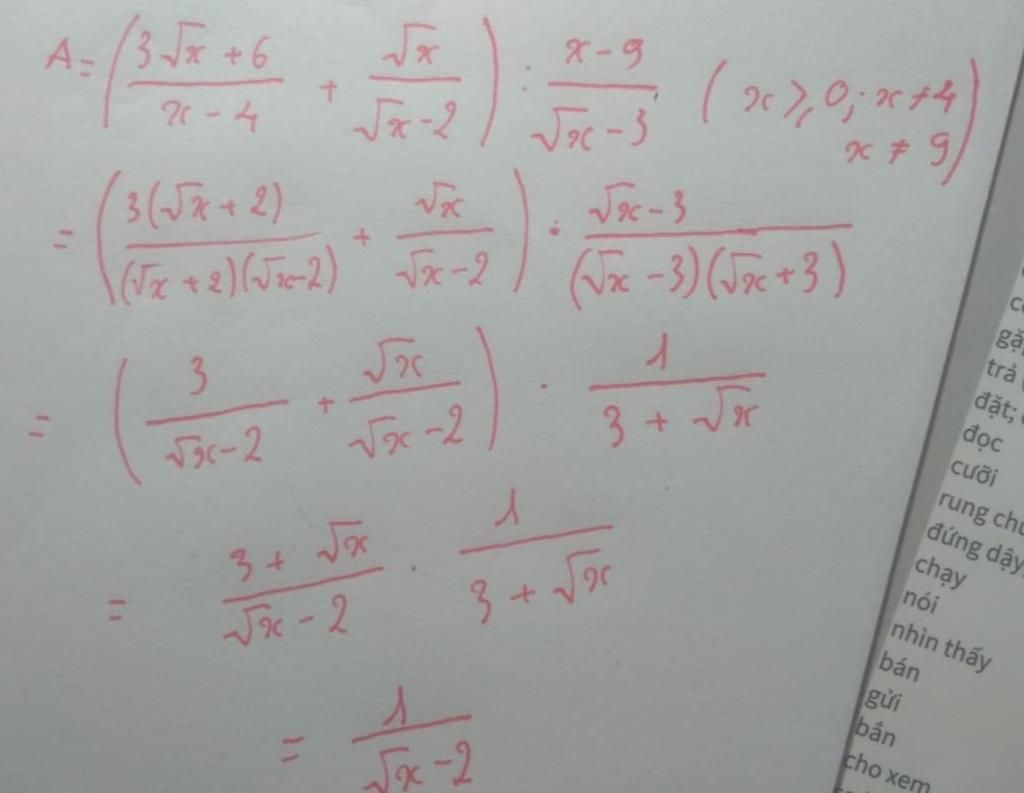 A = ( (3√x + 6)/(x - 4) + √x/(√x - 2) ) : (x - 9)/(√x - 3) ( x ≥ 0; x ≠ 4
x ≠ 9 )
= ( 3(√x + 2)/((√x + 2)(√x - 2)) + √x/(√x - 2) ) · (√x - 3)/((√x - 3)(√x + 3))
= ( 3/(√x - 2) + √x/(√x - 2) ) · 1/(3 + √x)
= (3 + √x)/(√x - 2) · 1/(3 + √x)
= 1/(√x - 2)
trả
đặt;
đọc
cưỡi
rung
đứng dậy
chạy
nói
nhìn thấy
bán
gửi
bắn
cho xem